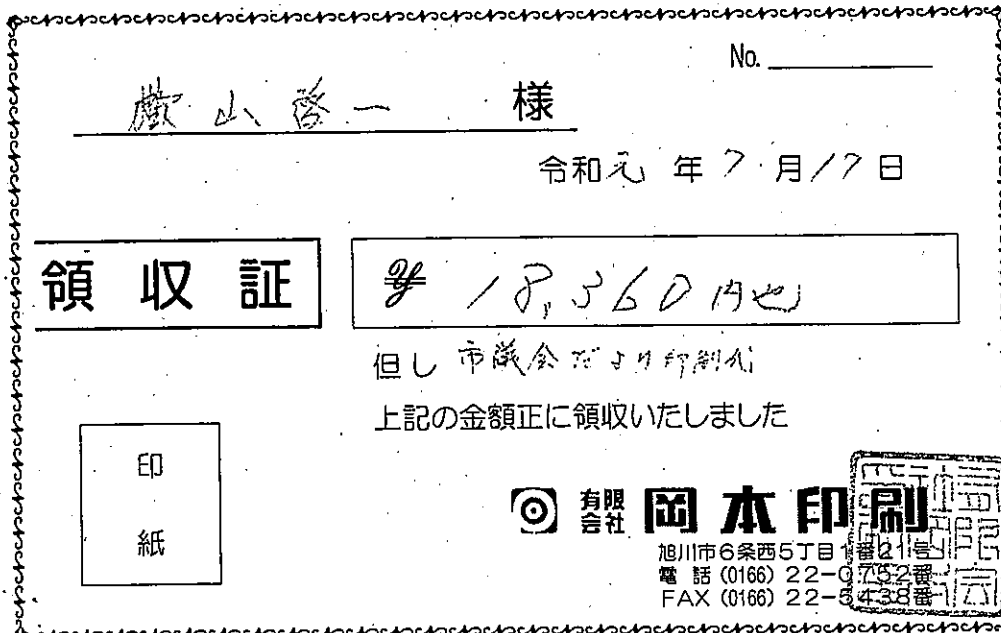 No.
山啓一 様
令和元年7月17日
領収証
¥ 18,360円也
但し 市議会だより印刷代
上記の金額正に領収いたしました
印
紙
有限会社 岡本印刷
旭川市6条西5丁目1番21号
電話(0166)22-0752番
FAX(0166)22-5438番